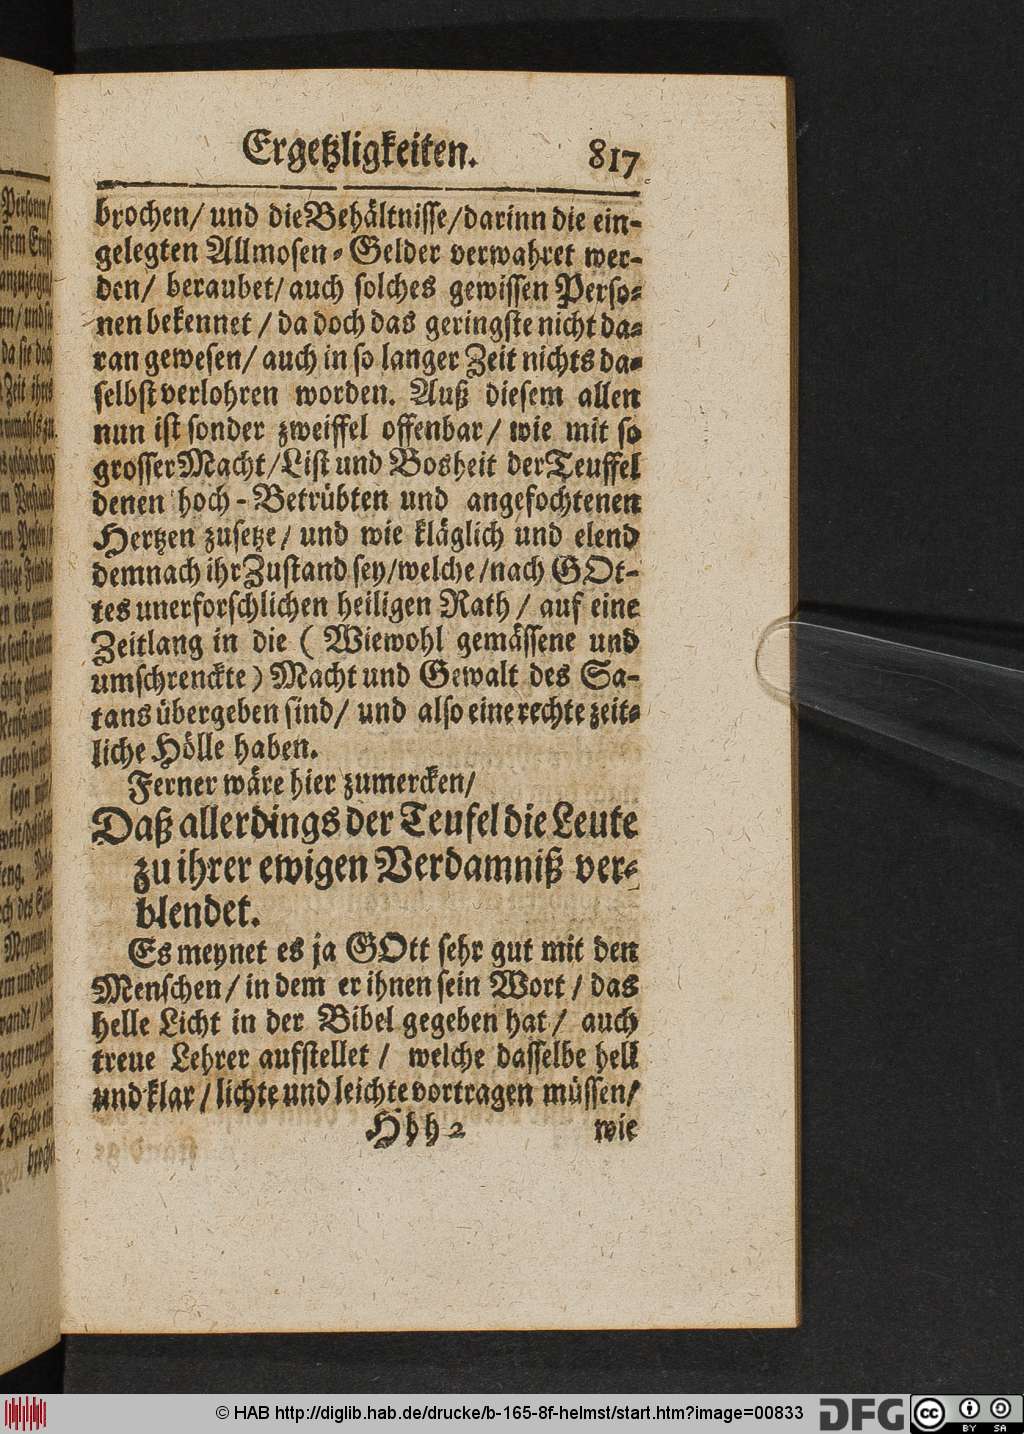 Ergetzligkeiten. 817
brochen/ und die Behältnisse/ darinn die ein-
gelegten Allmosen-Gelder verwahret wer-
den/ beraubet/ auch solches gewissen Perso-
nen bekennet / da doch das geringste nicht da-
ran gewesen/ auch in so langer Zeit nichts da-
selbst verlohren worden. Auß diesem allen
nun ist sonder zweiffel offenbar/ wie mit so
grosser Macht/ List und Bosheit der Teuffel
denen hoch-Betrübten und angefochtenen
Hertzen zusetze/ und wie kläglich und elend
demnach ihr Zustand sey/ welche/ nach GOt-
tes unerforschlichen heiligen Rath/ auf eine
Zeitlang in die ( Wiewohl gemässene und
umschrenckte) Macht und Gewalt des Sa-
tans übergeben sind/ und also eine rechte zeit-
liche Hölle haben.
Ferner wäre hier zumercken/
Daß allerdings der Teufel die Leute
zu ihrer ewigen Verdamniß ver-
blendet.
Es meynet es ja GOtt sehr gut mit den
Menschen/ in dem er ihnen sein Wort/ das
helle Licht in der Bibel gegeben hat/ auch
treue Lehrer aufstellet/ welche dasselbe hell
und klar/ lichte und leichte vortragen müssen/
Hhh 2 wie
© HAB http://diglib.hab.de/drucke/b-165-8f-helmst/start.htm?image=00833
DFG
cc BY SA